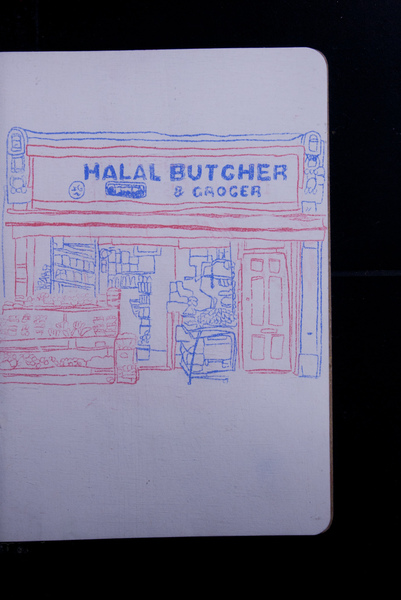 HALAL BUTCHER
& GROCER